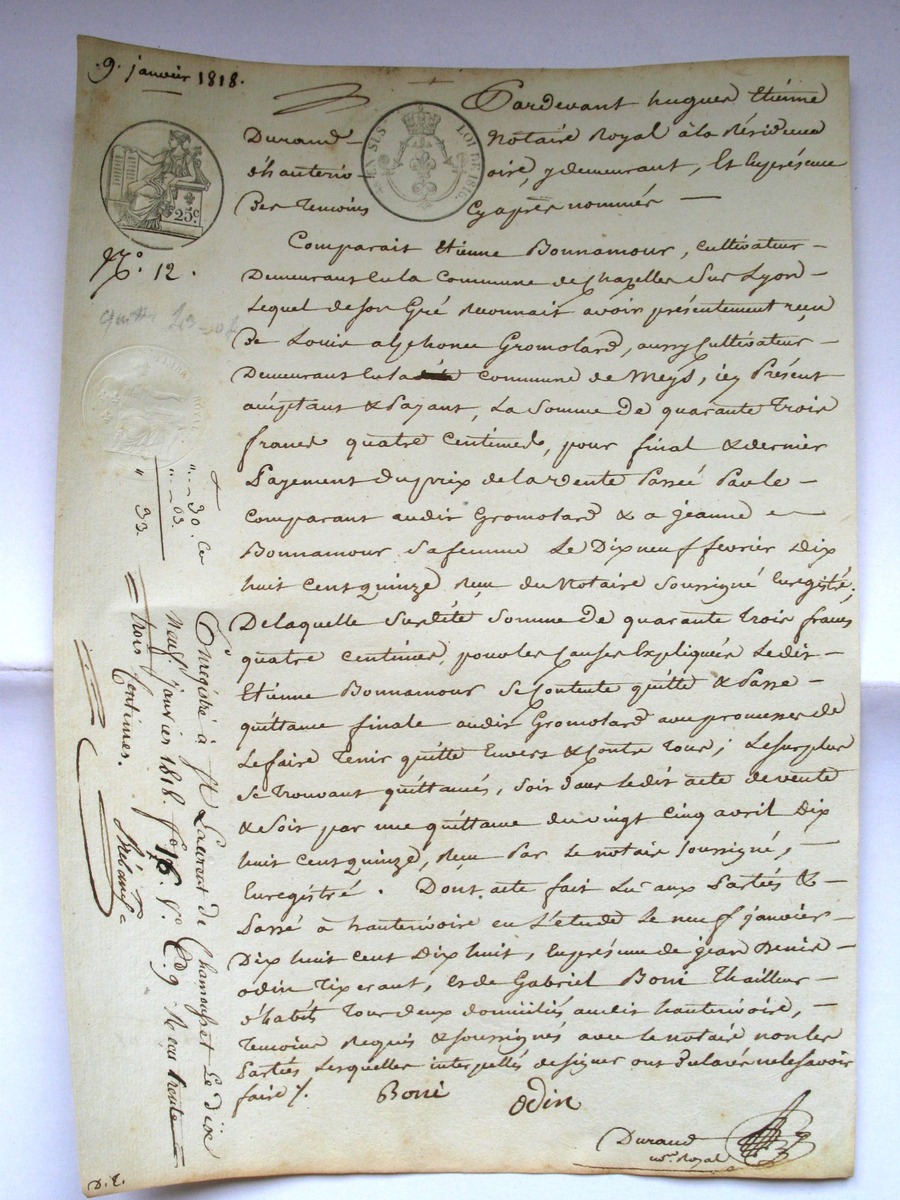 9. janvier 1818.
Pardevant hugues Etiénne
Durand notaire Royal à la Résidence
d'hauterivoire, y demeurant, Et En présence
Des Temoins Cyaprès nommés —
25c
N.° 12.
Comparait Etienne Bonnamour, Cultivateur —
Demeurant En la Commune de Chazelles Sur Lyon —
Lequel de Son Gré Reconnait avoir présentement reçu
De Louis alphonce Gromolard, aussy Cultivateur —
Demeurant En la Commune de Meys, icy Présent
acceptant & Payant, La Somme De quarante Trois
francs quatre Centimes, pour final & dernier
Payement Du prix de la Vente Passée Par le —
Comparant audit Gromolard & a jéanne
Bonnamour Sa femme Le Dix neuf février Dix
huit Cent quinze Reçu Du Notaire Soussigné Enregistré,
De laquelle Susdite Somme De quarante Trois francs
quatre Centimes, pour les Causes Expliquées Ledit —
Etiénne Bonnamour Se Contente quitte & Passe —
quittance finale audit Gromolard avec promesses de
Le faire Tenir quitte Envers & Contre Tous ; Le Surplus
Se Trouvant quittancés, Soit Dans le dit acte de vente
& Soit par une quittance du vingt Cinq avril Dix
huit Cent quinze, Reçu Par Le notaire Soussigné,
Enregistré. Dont acte fait Lu aux Parties & —
Passé à hauterivoire en L'etude Le neuf janvier —
Dix huit Cent Dix huit, En présence de jean Denis —
odin Tixerant, & de Gabriel Boni Thailleur —
d'habits Tous deux domiciliés audit hauterivoire, —
Temoins Requis & Soussignés avec le notaire non les
Parties Lesquelles interpellés de signer ont Déclarés ne le Savoir
faire /.
Boni
Odin
Durand
n.re Royal
D. E.
"..—30. Cen
"..—03.
" 33.
Enregistré à St Laurent de Chamousset Le dix
Neuf janvier 1818. f° 16. V° C. 9 Reçu trente
trois Centimes.